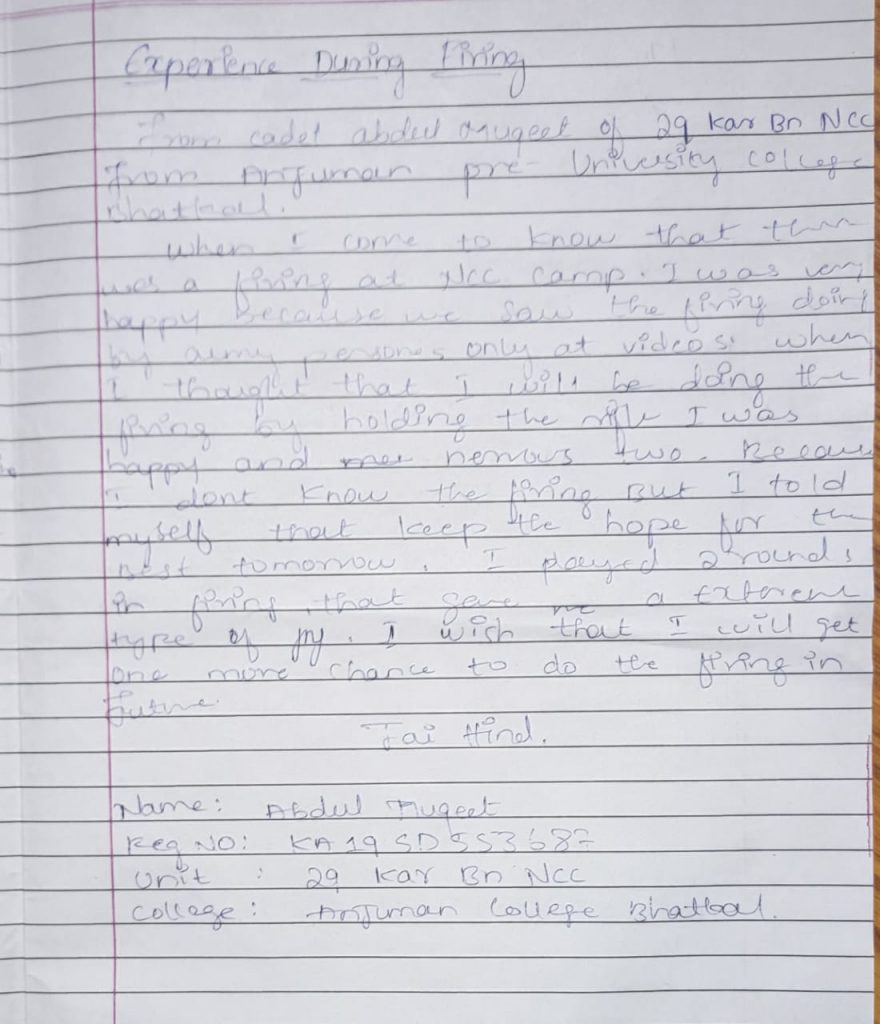 Experience During Firing
From cadet abdul Muqeet of 29 Kar Bn NCC
from Anjuman pre- University college
Bhatkal.
When I come to know that ther
was a firing at Ncc camp. I was very
happy Because we saw the firing doing
by army persones only at videos. when
I thought that I will be doing the
firing by holding the rifle I was
happy and nervous two. Because
I dont know the firing But I told
myself that keep the hope for the
best tomorrow. I played 2 rounds
in firing that gave me a
type of joy. I wish that I will get
one more chance to do the firing in
future.
Jai Hind.
Name: Abdul Muqeet
Reg NO: KA 19 SD 553687
Unit : 29 Kar Bn NCC
College: Anjuman College Bhatkal.